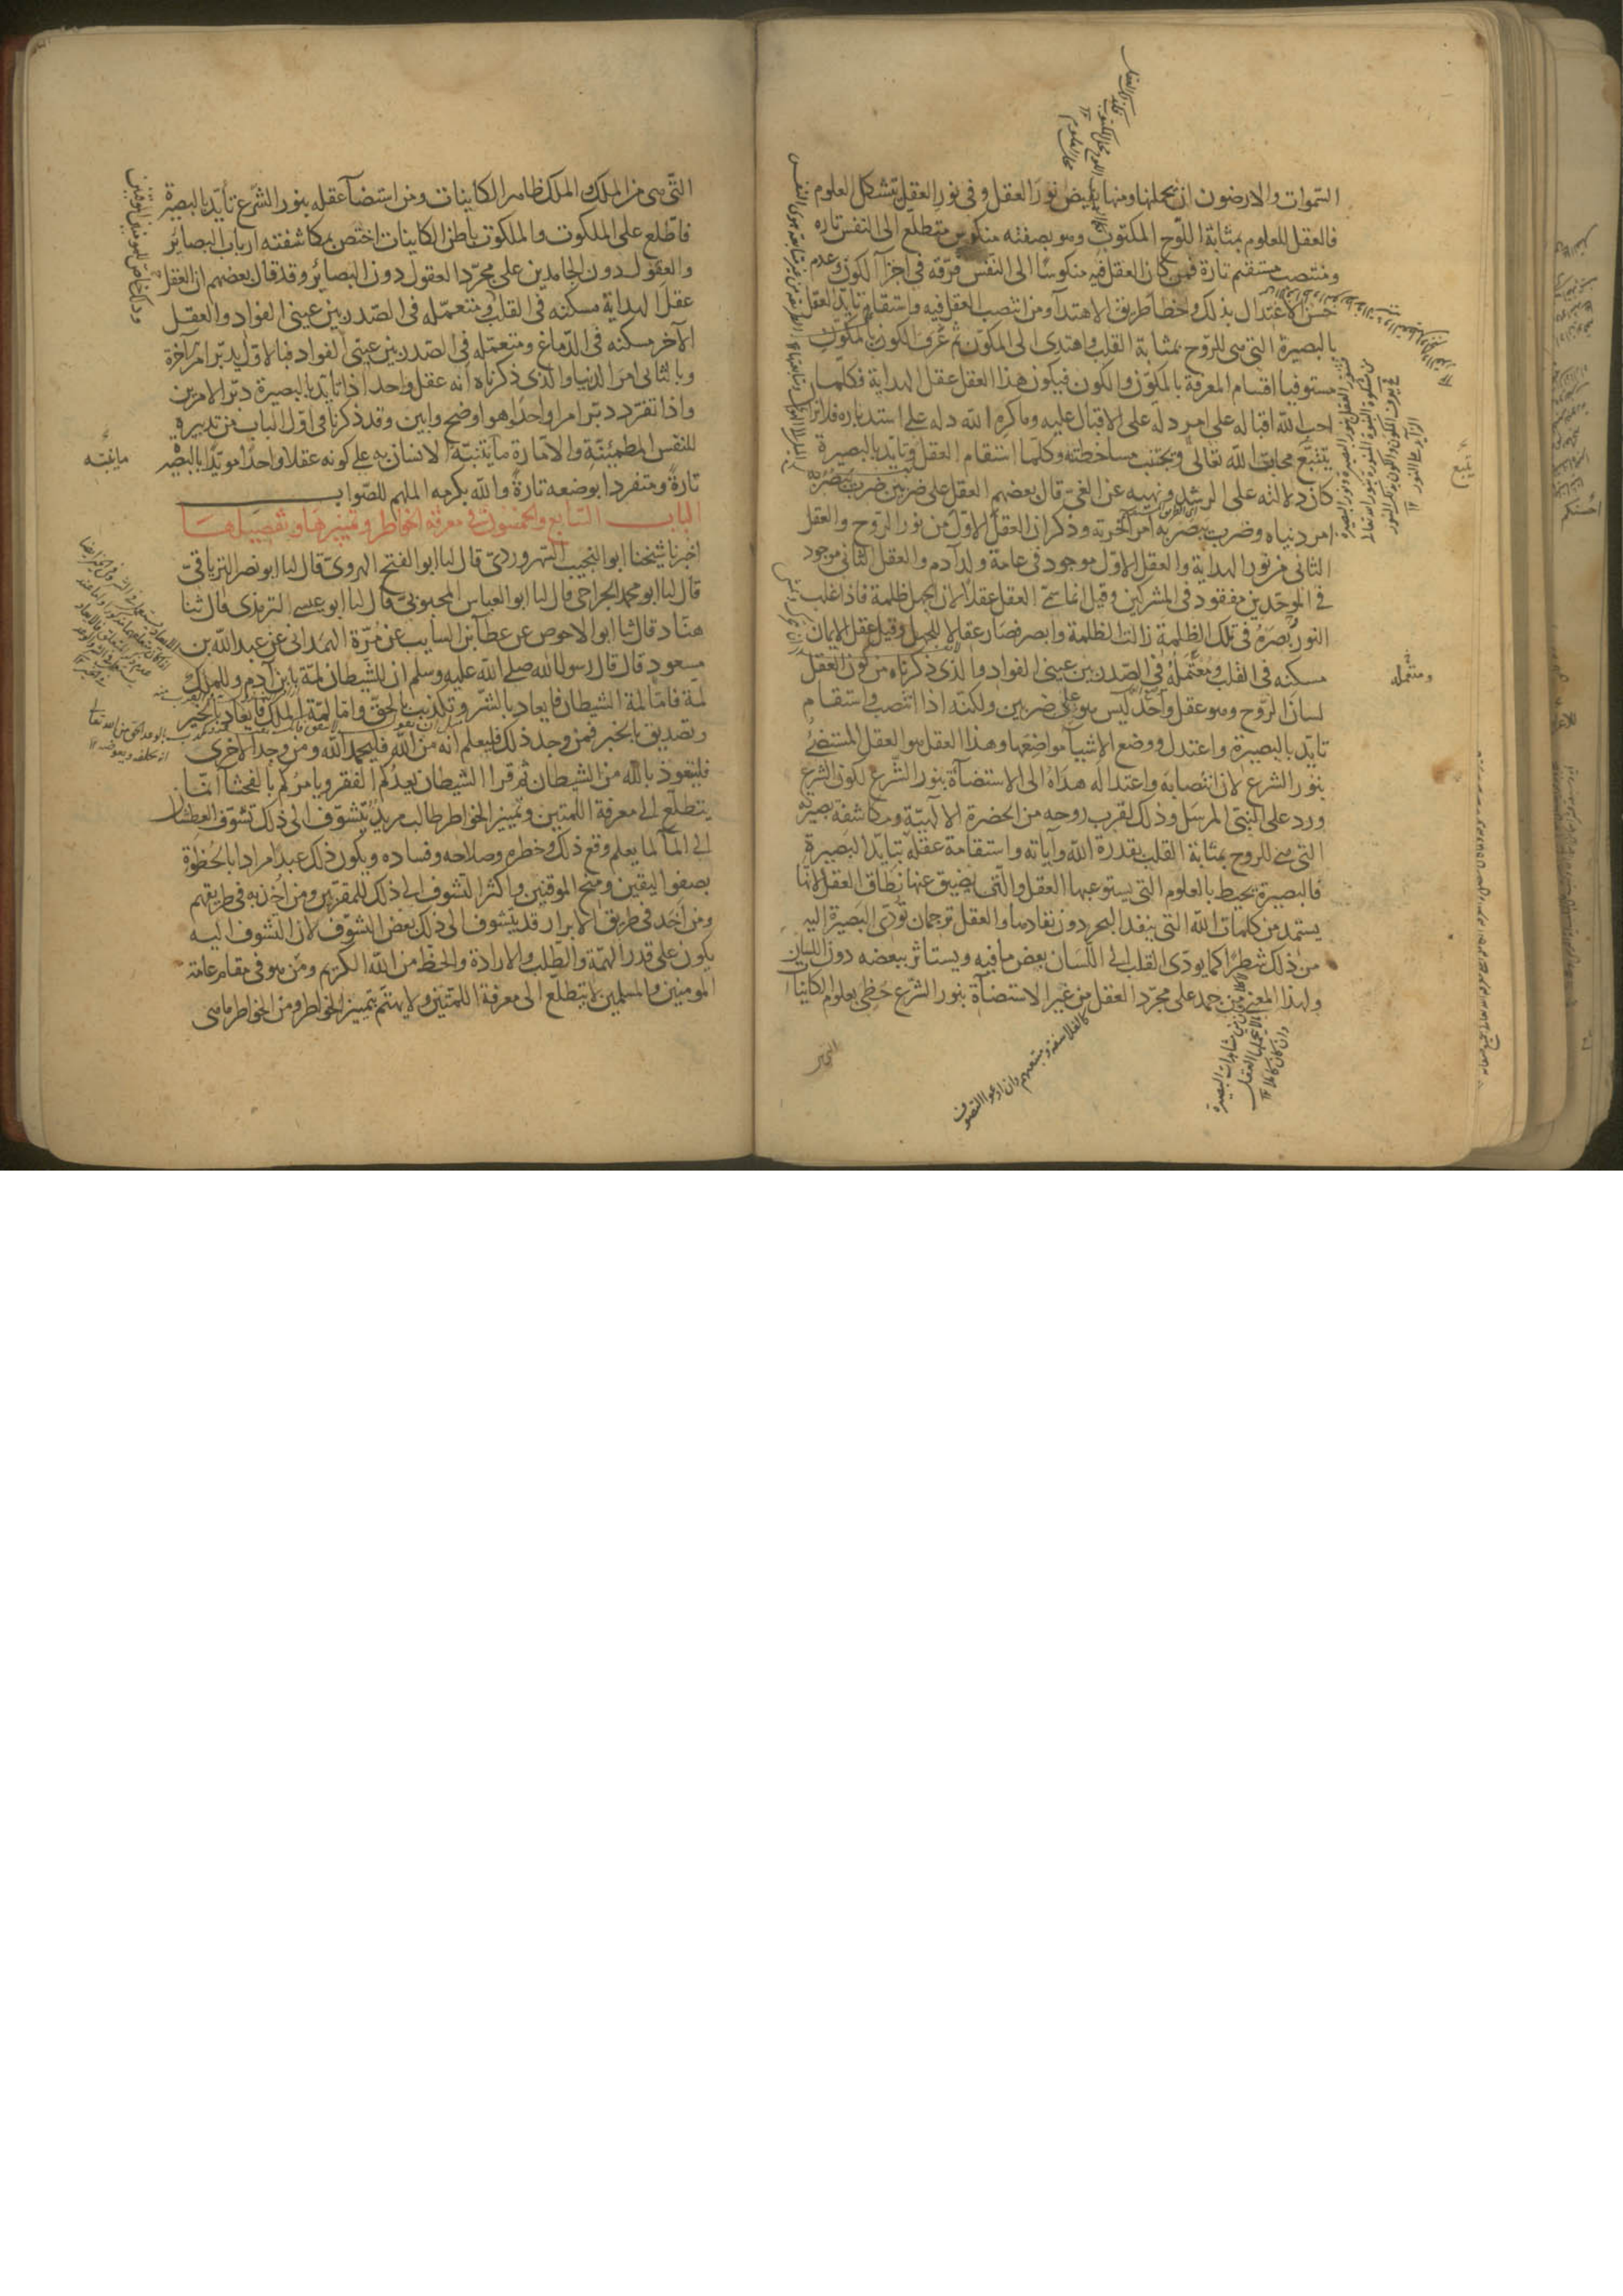 السموات والارضون ان يحملنها ومنها يفيض نور العقل وفي نور العقل تتشكل العلوم
فالعقل للعلوم بمثابة اللوح المكتوب وهو بصفته منكوس متطلع الى النفس تاره
ومنتصب مستقيم تارة فمن كان العقل فيه منكوسا الى النفس فرقه في اجزآ الكون وعدم
حسن الاعتدال بذلك واخطأ طريق الاهتدآ ومن انتصب العقل فيه واستقام تايد العقل
بالبصيرة التي هي للروح بمثابة القلب واهتدى الى المكون ثم عرف الكون بالمكون
مستوفيا اقسام المعرفة بالمكون والكون فيكون هذا العقل عقل الهداية فكلما
احب الله اقباله على امر دله على الاقبال عليه وما كره الله دله على استدباره فلا يزال
يتتبع محاب الله تعالى ويجتنب مساخطته وكلما استقام العقل وتايد بالبصيرة
كان دلالته على الرشد ونهيه عن الغي قال بعضهم العقل على ضربين ضرب يبصر به
امر دنياه وضرب يبصر به امر اخرته وذكر ان العقل الاول من نور الروح والعقل
الثاني من نور الهداية والعقل الاول موجود في عامة ولد آدم والعقل الثاني موجود
في الموحدين مفقود في المشركين وقيل انما سمي العقل عقلا لان الجهل ظلمة فاذا غلب
النور بصره في تلك الظلمة زالت الظلمة وابصر فصار عقالا للجهل وقيل عقل الايمان
مسكنه في القلب ومعتمله في الصدر بين عيني الفواد والذي ذكرناه من كون العقل
لسان الروح وهو عقل واحد ليس هو على ضربين ولكنه اذا انتصب واستقام
تايد بالبصيرة واعتدل ووضع الاشيآ مواضعها وهذا العقل هو العقل المستضئ
بنور الشرع لان انتصابه واعتداله هداه الى الاستضآة بنور الشرع لكون الشرع
ورد على النبي المرسل وذلك لقرب روحه من الحضرة الالهية ومكاشفة بصيرته
التي هي للروح بمثابة القلب بقدرة الله وآياته واستقامة عقله بتايد البصيرة
فالبصيرة تحيط بالعلوم التي يستوعبها العقل والتي يضيق عنها نطاق العقل لانها
يستمد من كلمات الله التي ينفد البحر دون نفادها والعقل ترجمان تودي البصيرة اليه
من ذلك شطرا كما يودي القلب الى اللسان بعض ما فيه ويستاثر ببعضه دون اللسان
ولهذا المعنى من جمد على مجرد العقل من غير الاستضآة بنور الشرع حظي بعلوم الكاينات
ومتعمله
كالفلاسفة ومتبعيهم وان ادعوا التصوف
التي هي من الملك والملك ظاهر الكاينات ومن استضآ عقله بنور الشرع تأيد بالبصيرة
فاطلع على الملكوت والملكوت باطن الكاينات اختص بمكاشفته ارباب البصاير
والعقول دون الجامدين على مجرد العقول دون البصائر وقد قال بعضهم ان العقل
عقل الهداية مسكنه في القلب ومتعمله في الصدر بين عيني الفواد والعقل
الآخر مسكنه في الدماغ ومتعمله في الصدر بين عيني الفواد فبالاول يدبر امر آخرة
وبالثاني امر الدنيا والذي ذكرناه انه عقل واحد اذا تأيد بالبصيرة دبر الامرين
واذا تفرد دبر امرا واحدا وهو اوضح وابين وقد ذكرنا في اول الباب من تدبيره
للنفس المطمئنة والامارة ما يتنبه الانسان به على كونه عقلا واحدا مويدا بالبصيرة
تارة ومتفردا بوضعه تارة والله بكرمه الملهم للصواب
الباب السابع والخمسون في معرفة الخواطر وتمييزها وتفصيلها
اخبرنا شيخنا ابو النجيب السهروردي قال انبا ابو الفتح الهروي قال انبا ابو نصر الترياقي
قال انبا ابو محمد الجراحي قال انبا ابو العباس المحبوبي قال انبا ابو عيسى الترمذي قال ثنا
هناد قال ثنا ابو الاحوص عن عطآ بن السايب عن مرة الهمداني عن عبد الله بن
مسعود قال قال رسول الله صلى الله عليه وسلم ان للشيطان لمة بابن آدم وللملك
لمة فاما لمة الشيطان فايعاد بالشر وتكذيب بالحق واما لمة الملك فايعاد بالخير
وتصديق بالخبر فمن وجد ذلك فليعلم انه من الله فليحمد الله ومن وجد الاخرى
فليتعوذ بالله من الشيطان ثم قرا الشيطان يعدكم الفقر ويامركم بالفحشا انما
يتطلع الى معرفة اللمتين وتمييز الخواطر طالب مريد يتشوف الى ذلك تشوف العطشان
الى المآ لما يعلم وقع ذلك وخطره وصلاحه وفساده ويكون ذلك عبدا مرادا بالحظوة
بصفو اليقين ومنح الموقنين واكثر التشوف الى ذلك للمقربين ومن اخذ به في طريقهم
ومن اخذ في طريق الابرار قد يتشوف الى ذلك بعض التشوف لان التشوف اليه
يكون على قدر الهمة والطلب والارادة والحظ من الله الكريم ومن هو في مقام عامة
المومنين والمسلمين لا يتطلع الى معرفة اللمتين ولا يهتم بتمييز الخواطر ومن الخواطر ما هي